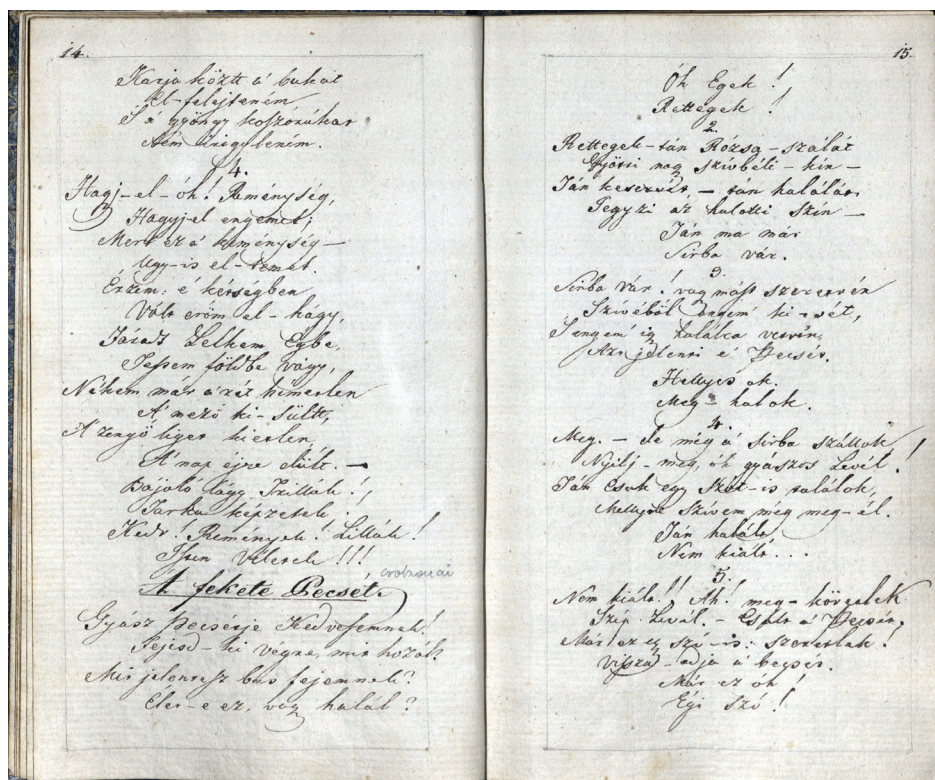 14.
Karja köztt a' buhát
El-felejteném
S' a' gyöngy koszorúkat
Nem irigyleném.
4.
Hagj-el-óh! Reménység,
Hagyj-el engemet;
Mert ez a' keménység—
Ugy-is el-temet.
Érzem: e' kétségben
Vólt erőm el-hagy,
Fáradt Lelkem Égbe,
Testem földbe vágy,
Nékem már a' rét himetlen
A' mező ki-sűltt,
A' zengő liget kietlen
A' nap éjre dűlt.—
Bájoló lágy Trillák!,
Tarka képzetek!
Kedv! Remények! Lillák!
Isten Véletek!!!
A' fekete Petsét.
Gyász Petsétje Kedvesemnek!
Fejtsd-ki végre, mit hozál?
Mit jelentesz bús fejemnek?
Élet-e ez, vagy halál?
15.
Óh Egek!
Rettegek!
2.
Rettegek-tán Rózsa-szálát
Gyötri nagy szívbéli-kín—
Tán keservét,—tán halálát
Jegyzi az halotti szín—
Tán ma már
Sírba vár.
3.
Sírba vár! vagy mást szeretvén
Szívéből engem' ki-vét,
S engem' így halálra vetvén,
Azt jelenti e' Petsét.
Mellytől ok.
Meg-halok.
4.
Meg.—de még a' sírba szállok
Nyilj-meg, óh gyászos Levél!
Tán Csak egy Szót-is találok,
Mellytől szívem még meg-él.
Tán halált
Nem kiált...
5.
Nem kiált!! Ah! meg-követlek
Szép Levél.—Csalt a' Petsét,
Már ez egy szó-is: szeretlek!
Vissza-adja a' betsét.
Már ez óh!
Égi szó!